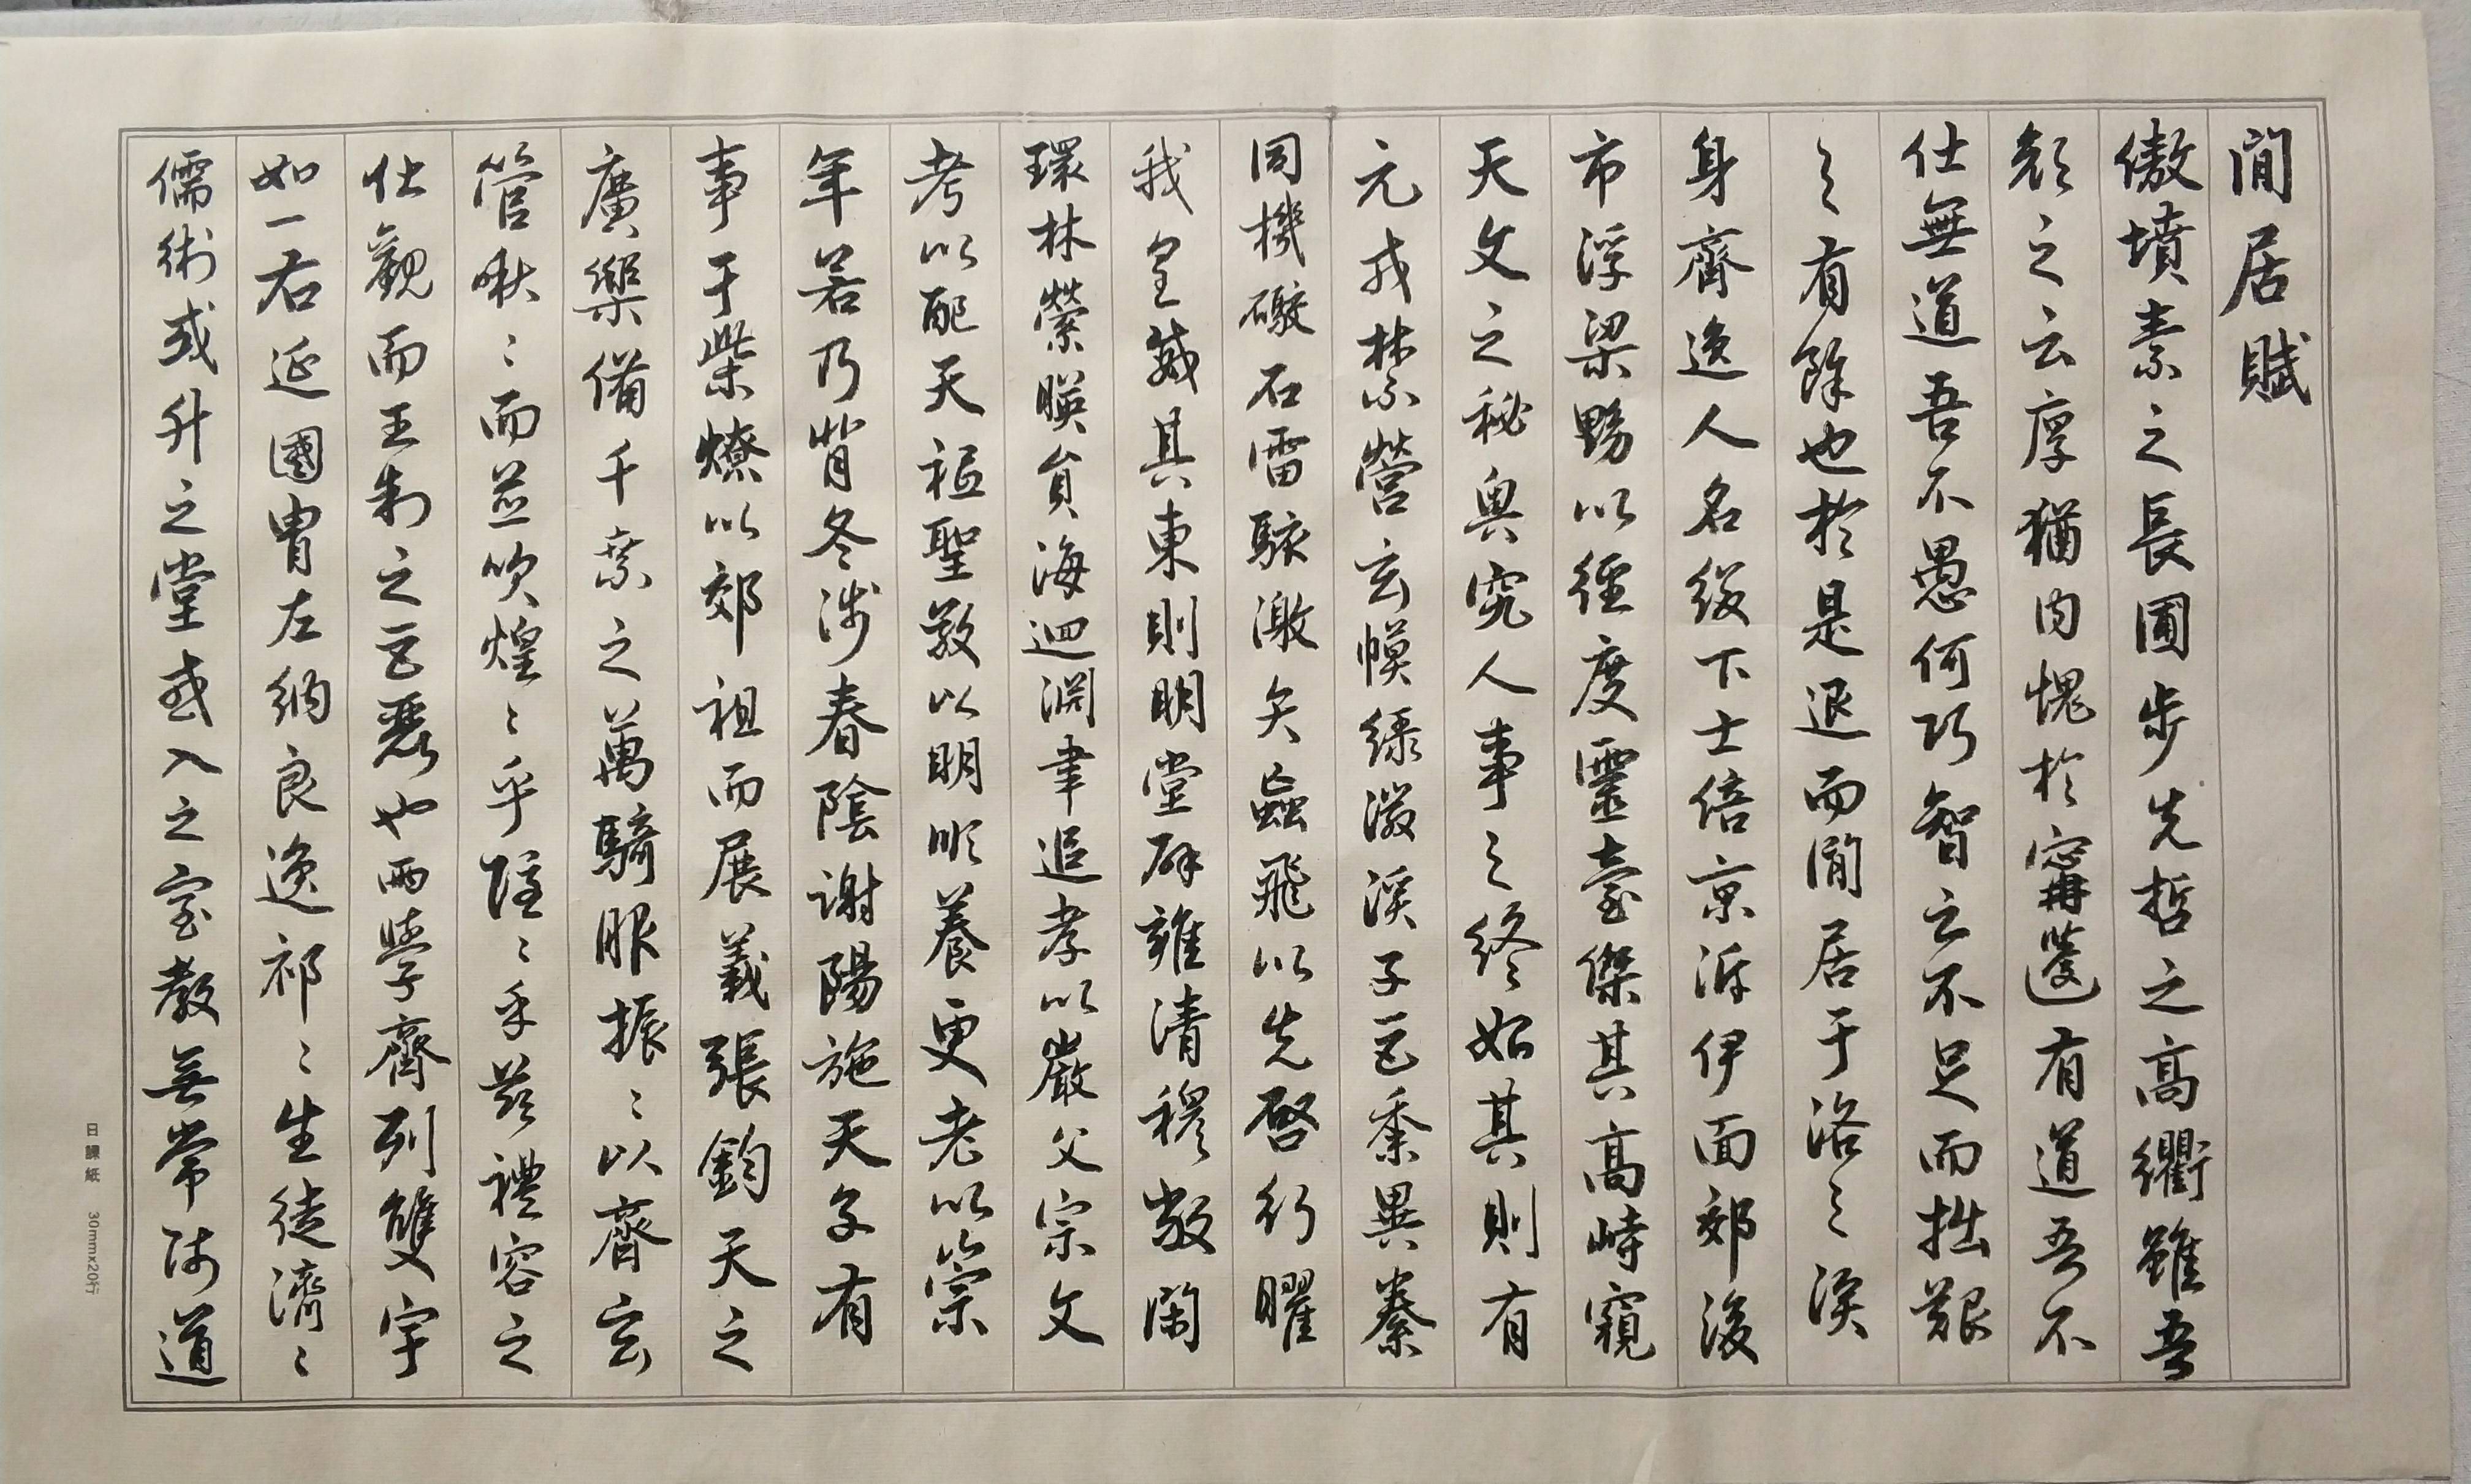 閒居賦
傲墳素之長圃步先哲之高衢雖吾
顏之云厚猶內愧於甯蘧有道吾不
仕無道吾不愚何巧智之不足而拙艱
之有餘也於是退而閒居于洛之涘
身齊逸人名綴下士倍京泝伊面郊後
市浮梁黝以徑度靈臺傑其高峙窺
天文之秘奧究人事之終始其則有
元戎禁營玄幙綠徽溪子巨黍異絭
同機礮石雷駭激矢蝱飛以先啓行曜
我皇威其東則明堂辟雍清穆敞閑
環林縈暎員海迴淵聿追孝以嚴父宗文
考以配天祗聖敬以明順養更老以崇
年若乃背冬涉春陰謝陽施天子有
事于柴燎以郊祖而展義張鈞天之
廣樂備千乘之萬騎服振〻以齊玄
管啾〻而並吹煌〻乎隱〻乎茲禮容之
壯觀而王制之巨麗也兩學齊列雙宇
如一右延國胄左納良逸祁〻生徒濟〻
儒術或升之堂或入之室教無常師道
日課紙 30mmx20行